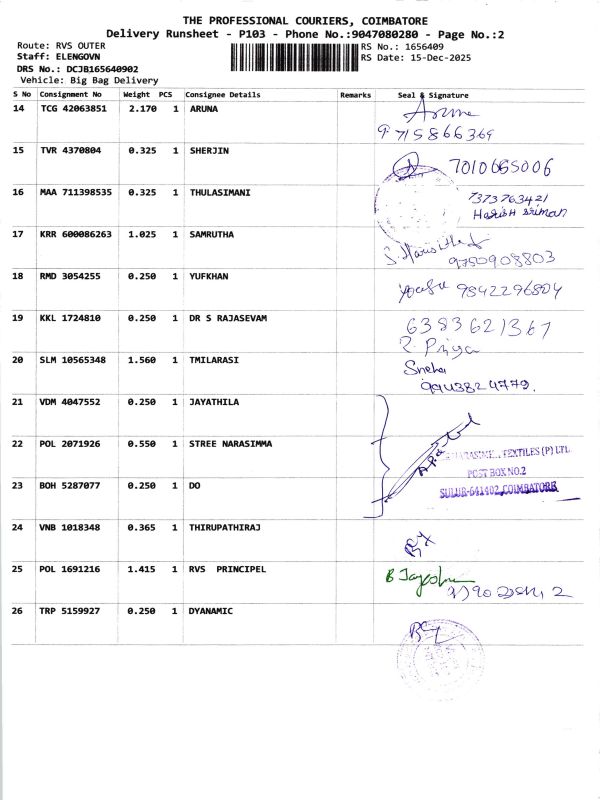 THE PROFESSIONAL COURIERS, COIMBATORE
Delivery Runsheet - P103 - Phone No.:9047080280 - Page No.:2
Route: RVS OUTER RS No.: 1656409
Staff: ELENGOVN RS Date: 15-Dec-2025
DRS No.: DCJB165640902
Vehicle: Big Bag Delivery
S No Consignment No Weight PCS Consignee Details Remarks Seal & Signature
14 TCG 42063851 2.170 1 ARUNA
9715866369
15 TVR 4370804 0.325 1 SHERJIN 7010665006
16 MAA 711398535 0.325 1 THULASIMANI 7373763421
Harish sriman
17 KRR 600086263 1.025 1 SAMRUTHA
9750908803
18 RMD 3054255 0.250 1 YUFKHAN 9842296804
19 KKL 1724810 0.250 1 DR S RAJASEVAM 6383621367
R. Priya
20 SLM 10565348 1.560 1 TMILARASI Sneha
9943824779.
21 VDM 4047552 0.250 1 JAYATHILA
22 POL 2071926 0.550 1 STREE NARASIMMA TEXTILES (P) LTD.
POST BOX NO.2
23 BOH 5287077 0.250 1 DO SULUR-641402, COIMBATORE
24 VNB 1018348 0.365 1 THIRUPATHIRAJ
25 POL 1691216 1.415 1 RVS PRINCIPEL
26 TRP 5159927 0.250 1 DYANAMIC